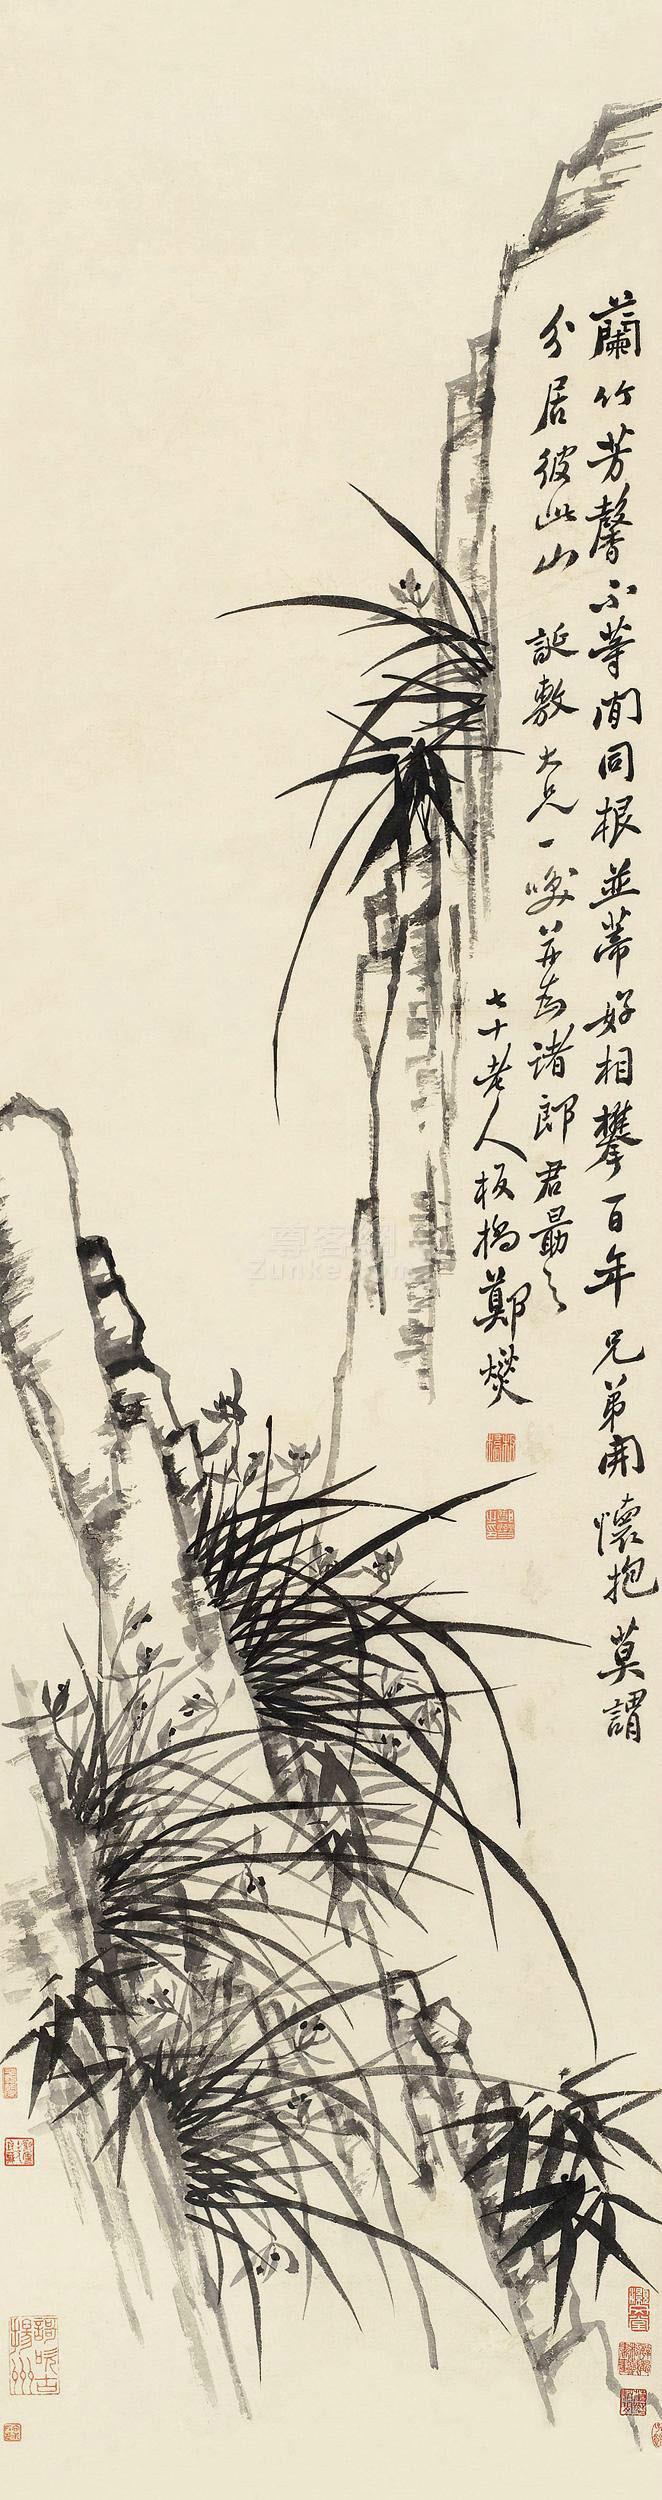 蘭竹芳馨不等閒同根並蒂好相攀百年兄弟開懷抱莫謂
分居彼此山 誕敷大兄一笑並為諸郎君勗之
七十老人板橋鄭燮
尊客網
Zunke.com